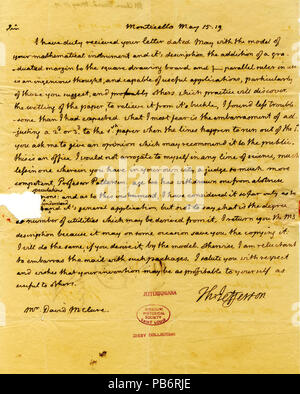 Sir Monticello May 15. 19
I have duly recieved your letter dated May with the model of
your mathematical instrument and it's description. the addition of a gra-
duated margin to the square drawing board and parallel ruler in use
is an ingenious thought, and capable of useful applications, particularly
of those you suggest, and probably others which practice will discover.
the wetting of the paper to relieve it from it's buckle, I found less trouble-
-some than I had expected. what I most fear is the embarrasment of ad-
-justing a 2d. or 3d. to the 1st. paper when the lines happen to run out of the 1st.
you ask me to give an opinion which may recommend it to the public.
this is an office I would not arrogate to myself in any line of science, much
less in one wherein you have in your own city a judge so much more
competent, Professor Patterson
and as to the
general application, but not to say what is the degree
or number of utilities which may be derived from it. I return you the MS.
description because it may on some occasion save you the copying it.
I will do the same, if you desire it, by the model. otherwise I am reluctant
to embarrass the mail with such packages. I salute you with respect
and wishes that your invention may be as profitable to yourself as
useful to others.
Th: Jefferson
JEFFERSONIANA
MISSOURI
HISTORICAL
SOCIETY
SAINT LOUIS
BIXBY COLLECTION
Mr. David McClure.
alamy
Image ID: PB6RJE
www.alamy.com